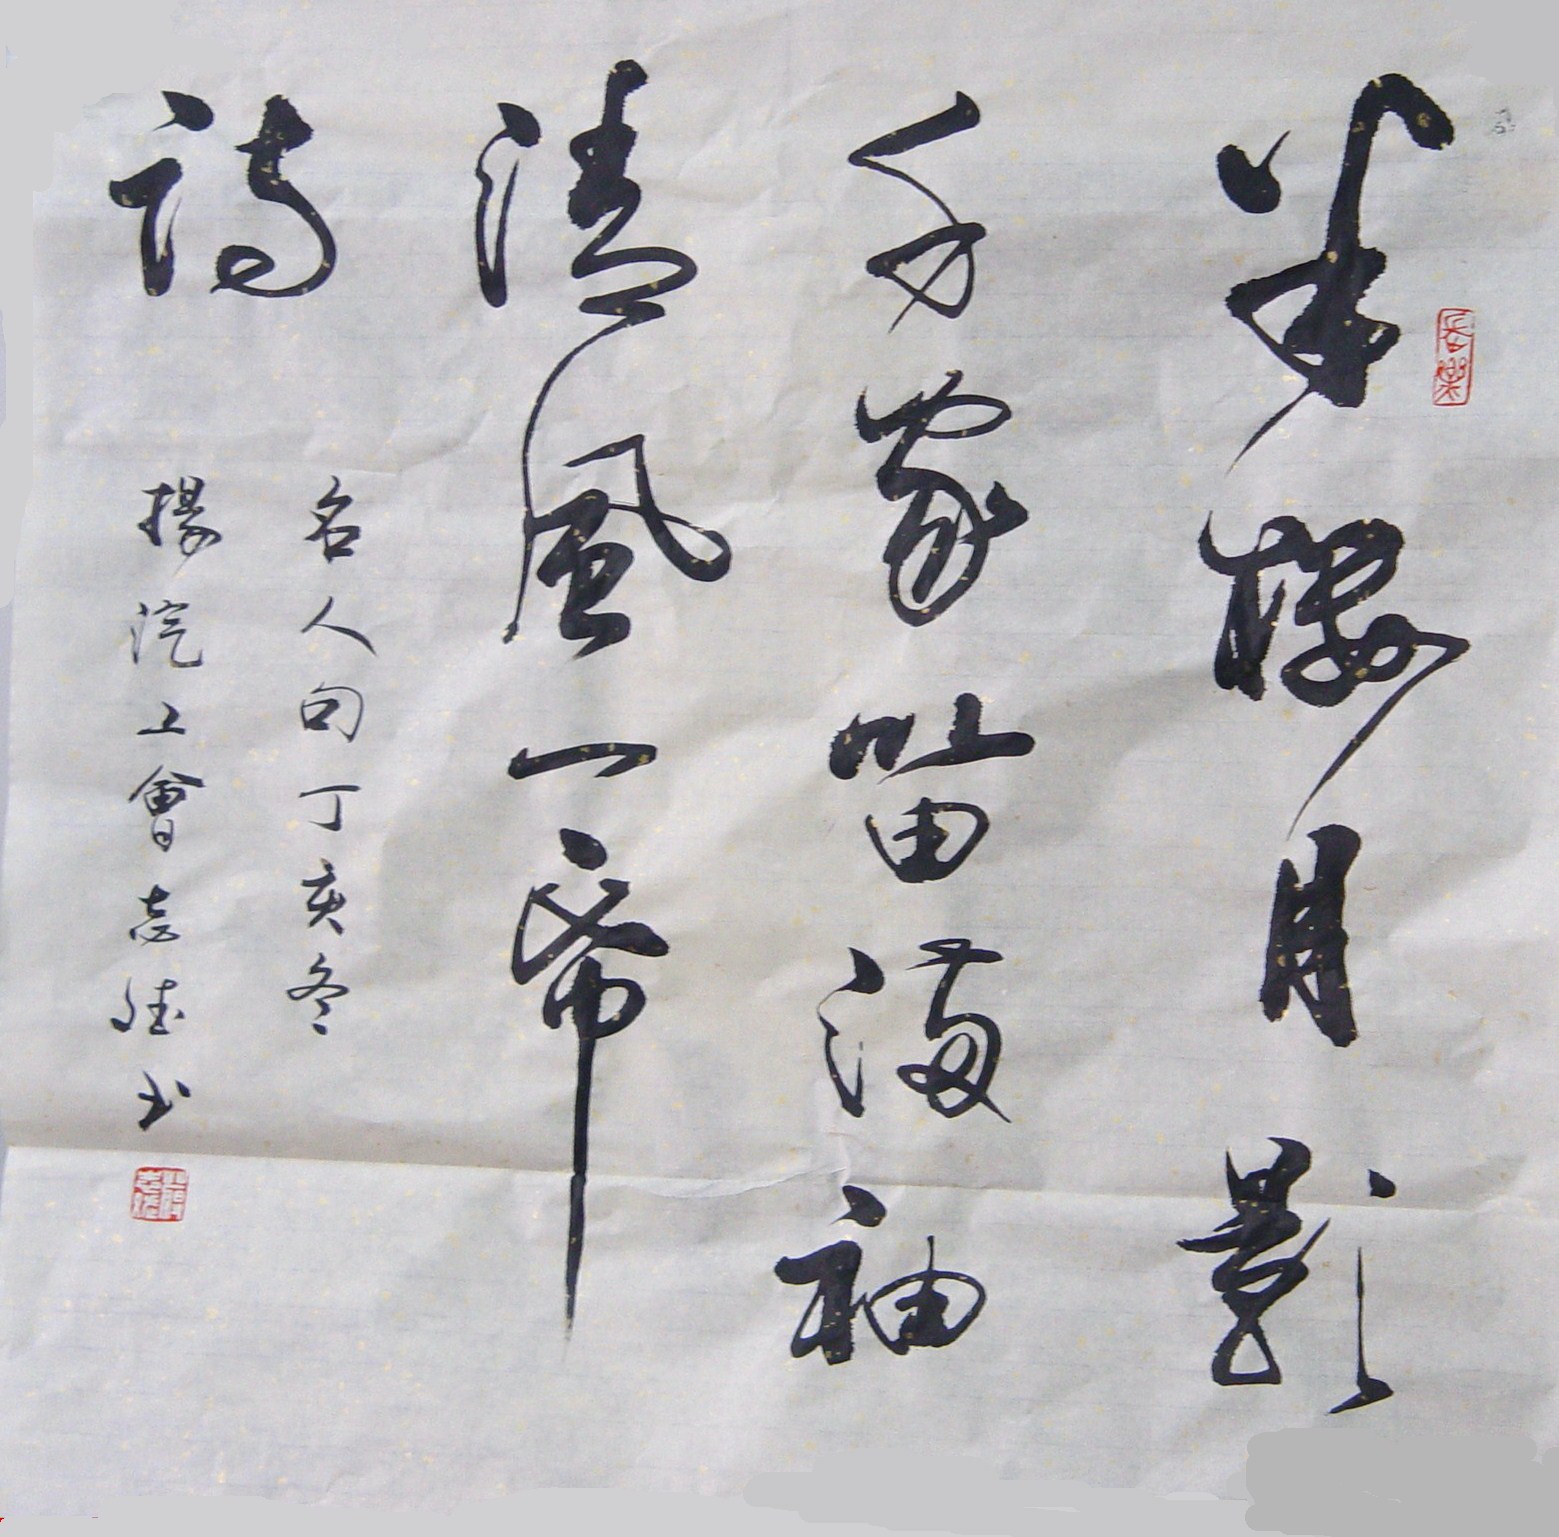 半樓月影
千家笛滿袖
清風一
詩
名人句丁亥冬
揚汽工會志書